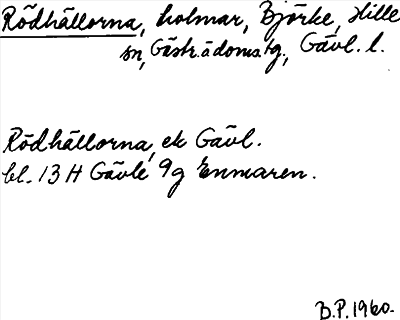 Rödhällorna, holmar, Björke, Hille
sn, Gästr. ö doms.tg., Gävl. l.
Rödhällorna, ek Gävl.
bl. 13 H Gävle 9g Enmaren.
B.P. 1960.